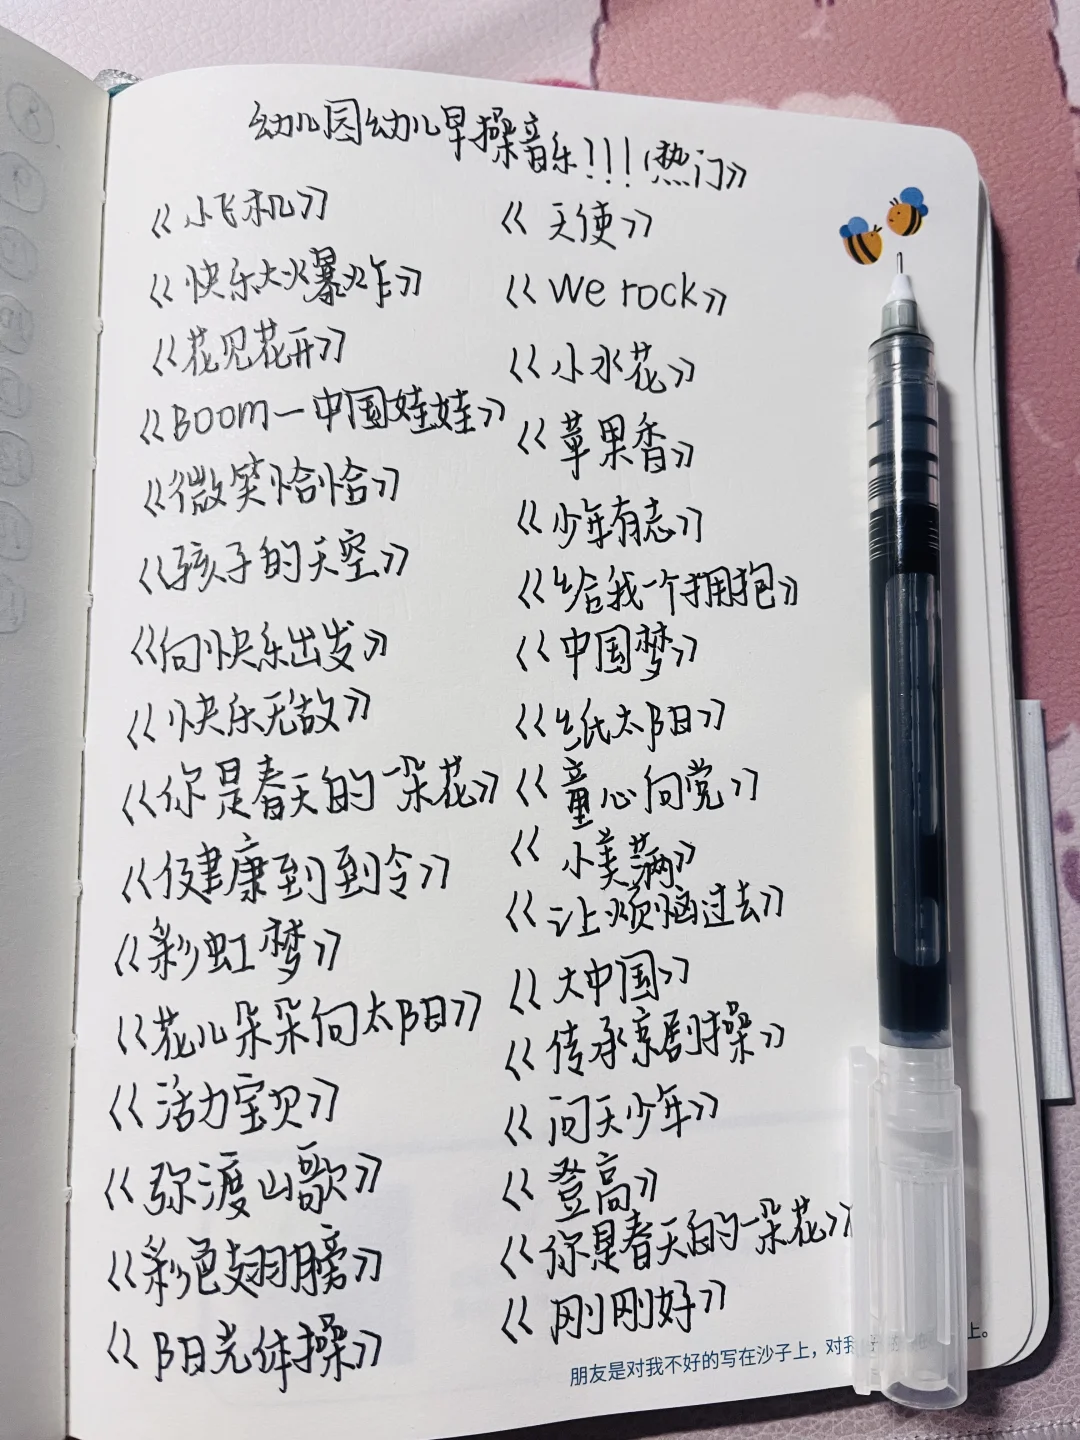 幼儿园幼儿早操音乐!!!《热门》
《小飞机》
《快乐大火爆炸》
《花见花开》
《BOOM一中国娃娃》
《微笑恰恰》
《孩子的天空》
《向快乐出发》
《快乐无敌》
《你是春天的一朵花》
《健康到到令》
《彩虹梦》
《花儿朵朵向太阳》
《活力宝贝》
《弥渡山歌》
《彩色翅膀》
《阳光体操》
《天使》
《We rock》
《小水花》
《苹果香》
《少年有志》
《给我一个拥抱》
《中国梦》
《纸太阳》
《童心向党》
《小美满》
《让烦恼过去》
《大中国》
《传承京剧操》
《问天少年》
《登高》
《你是春天的一朵花》
《刚刚好》
朋友是对我不好的写在沙子上，对我
上。